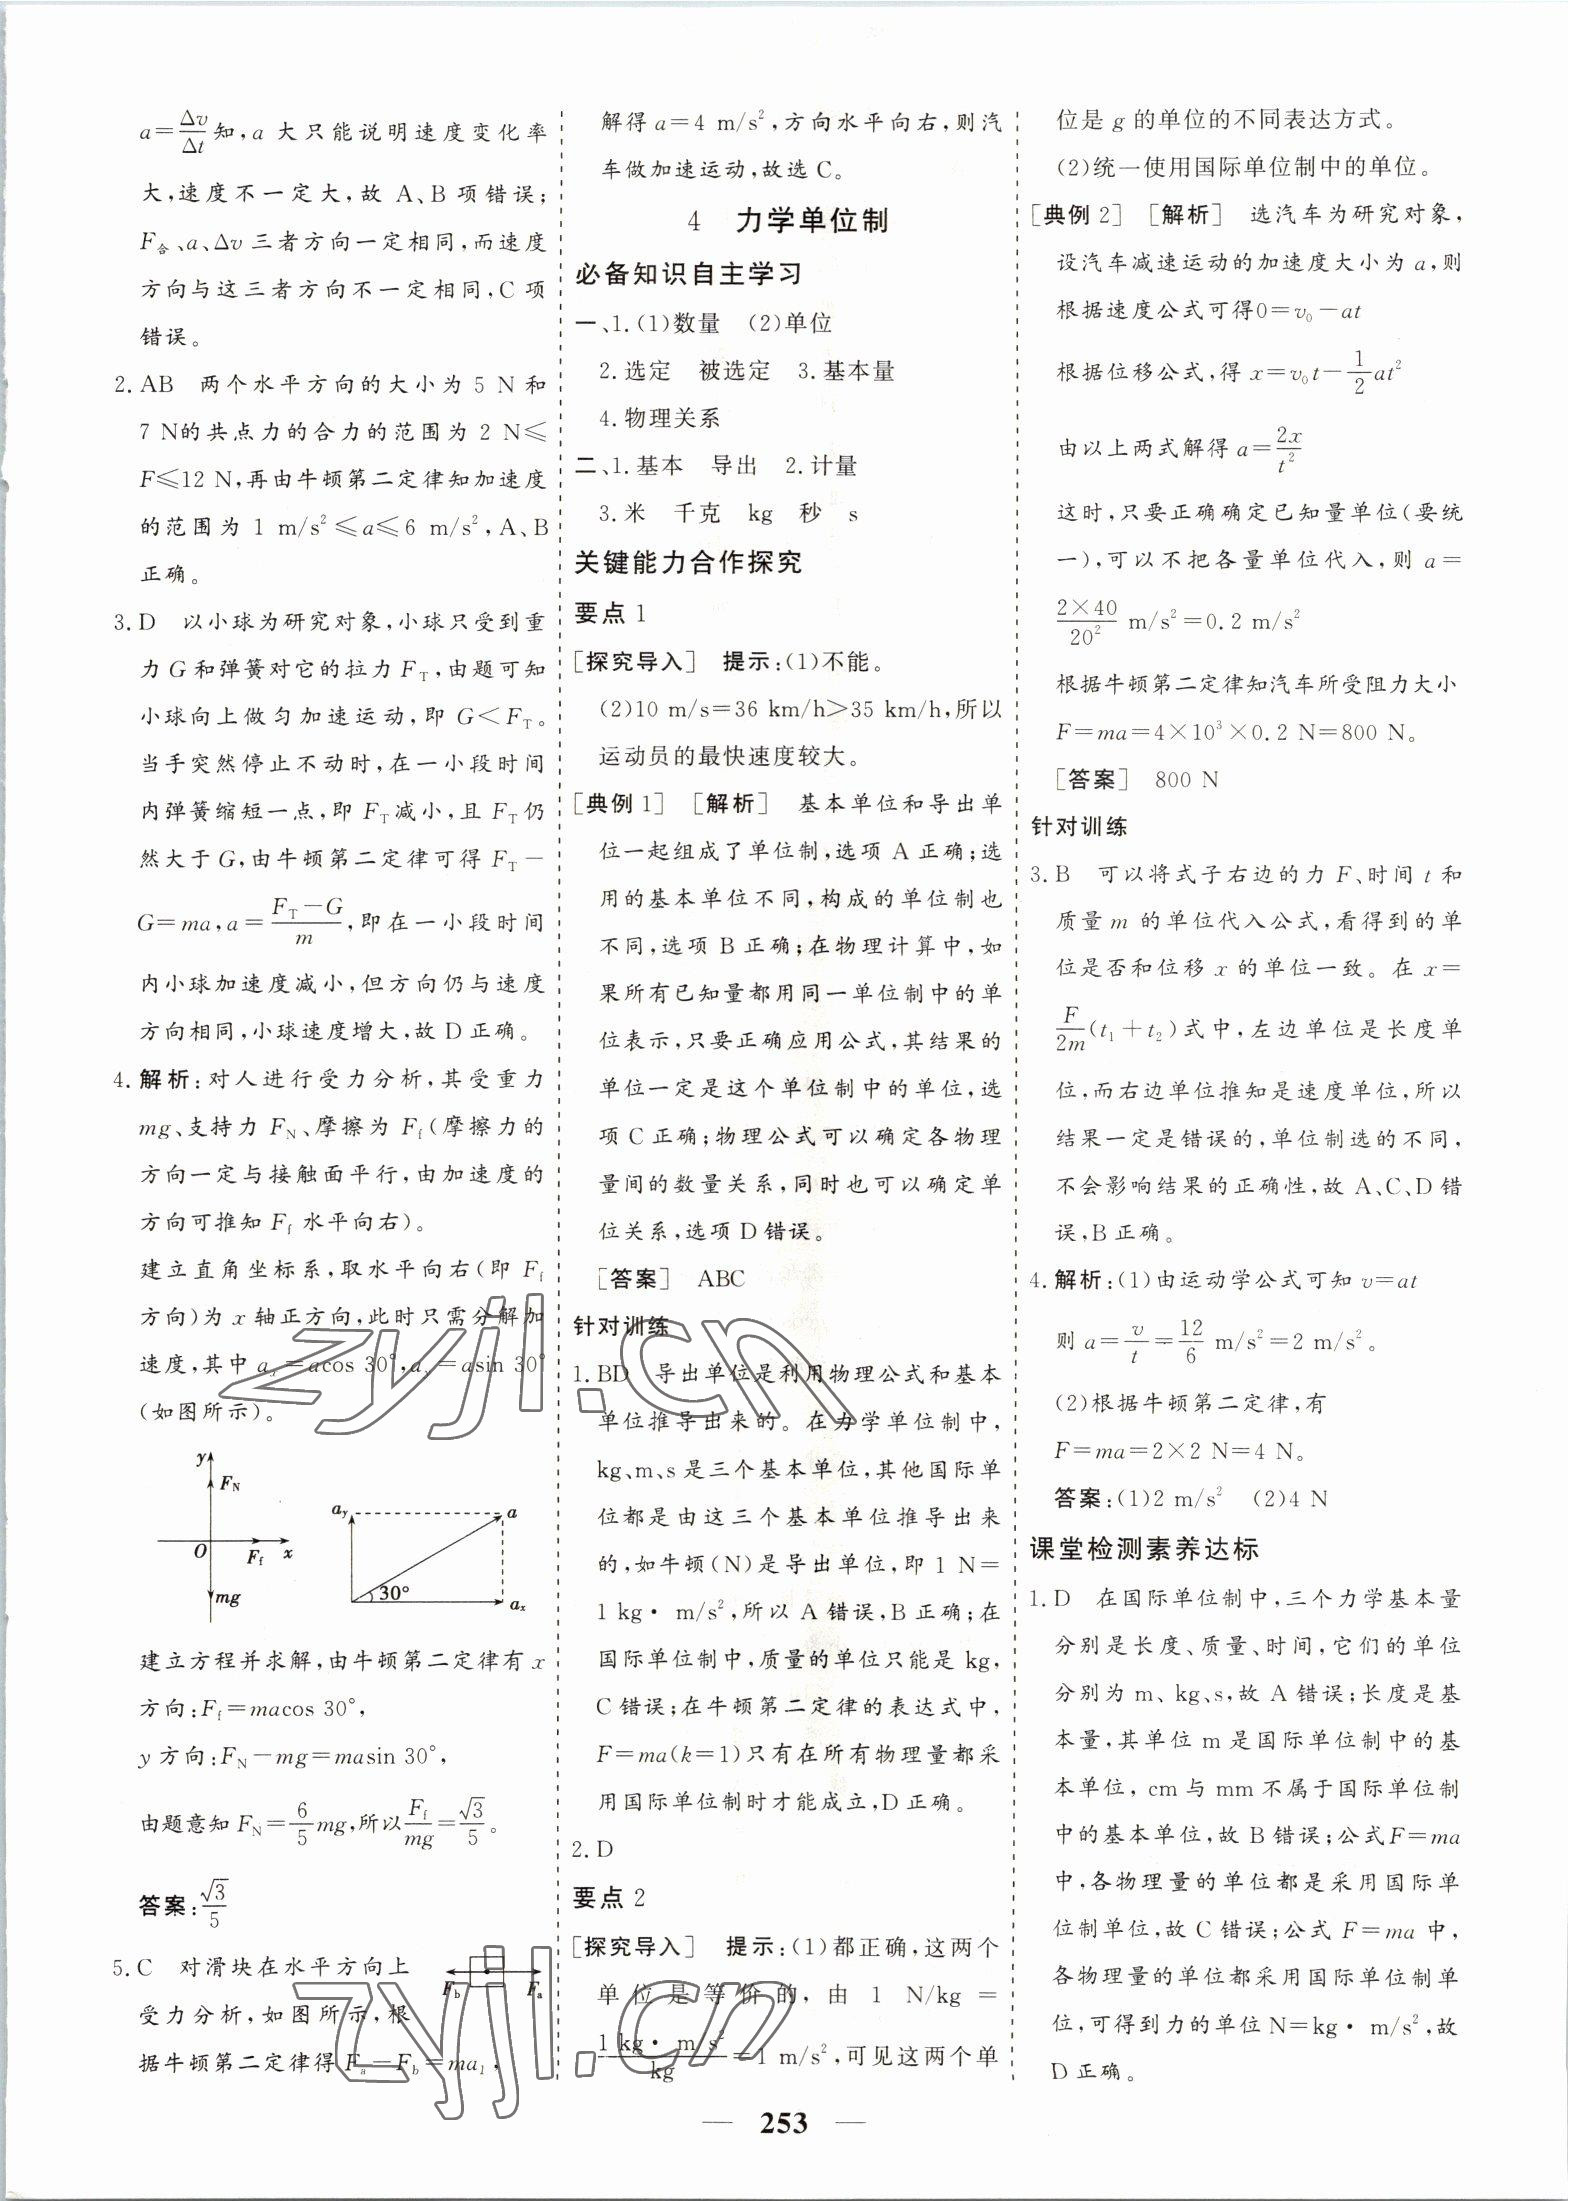 a=Δv/Δt知,a 大只能说明速度变化率
大,速度不一定大,故 A、B 项错误;
F合、a、Δv 三者方向一定相同,而速度
方向与这三者方向不一定相同,C 项
错误。
2. AB 两个水平方向的大小为 5 N 和
7 N的共点力的合力的范围为 2 N≤
F≤12 N,再由牛顿第二定律知加速度
的范围为 1 m/s²≤a≤6 m/s²,A、B
正确。
3. D 以小球为研究对象,小球只受到重
力 G 和弹簧对它的拉力 F_T,由题可知
小球向上做匀加速运动,即 G<F_T。
当手突然停止不动时,在一小段时间
内弹簧缩短一点,即 F_T减小,且 F_T仍
然大于 G,由牛顿第二定律可得 F_T-
G=ma,a=(F_T-G)/m,即在一小段时间
内小球加速度减小,但方向仍与速度
方向相同,小球速度增大,故 D 正确。
4. 解析:对人进行受力分析,其受重力
mg、支持力 F_N、摩擦为 F_f(摩擦力的
方向一定与接触面平行,由加速度的
方向可推知 F_f 水平向右)。
建立直角坐标系,取水平向右(即 F_f
方向)为 x 轴正方向,此时只需分解加
速度,其中 a_x=acos 30°,a_y=asin 30°
(如图所示)。
y
F_N
O
F_f
x
mg
a_y
a
30°
a_x
建立方程并求解,由牛顿第二定律有 x
方向:F_f=macos 30°,
y 方向:F_N-mg=masin 30°,
由题意知 F_N=6/5 mg,所以 F_f/mg=√3/5。
答案:√3/5
5. C 对滑块在水平方向上
受力分析,如图所示,根
据牛顿第二定律得 F_a-F_b=ma₁,
F_b
F_a
解得 a=4 m/s²,方向水平向右,则汽
车做加速运动,故选 C。
4 力学单位制
必备知识自主学习
一、1.(1)数量 (2)单位
2.选定 被选定 3.基本量
4.物理关系
二、1.基本 导出 2.计量
3.米 千克 kg 秒 s
关键能力合作探究
要点 1
[探究导入] 提示:(1)不能。
(2)10 m/s=36 km/h>35 km/h,所以
运动员的最快速度较大。
[典例 1] [解析] 基本单位和导出单
位一起组成了单位制,选项 A 正确;选
用的基本单位不同,构成的单位制也
不同,选项 B 正确;在物理计算中,如
果所有已知量都用同一单位制中的单
位表示,只要正确应用公式,其结果的
单位一定是这个单位制中的单位,选
项 C 正确;物理公式可以确定各物理
量间的数量关系,同时也可以确定单
位关系,选项 D 错误。
[答案] ABC
针对训练
1. BD 导出单位是利用物理公式和基本
单位推导出来的。在力学单位制中,
kg、m、s 是三个基本单位,其他国际单
位都是由这三个基本单位推导出来
的,如牛顿(N)是导出单位,即 1 N=
1 kg· m/s²,所以 A 错误,B 正确;在
国际单位制中,质量的单位只能是 kg,
C 错误;在牛顿第二定律的表达式中,
F=ma(k=1)只有在所有物理量都采
用国际单位制时才能成立,D 正确。
2. D
要点 2
[探究导入] 提示:(1)都正确,这两个
单位是等价的,由 1 N/kg=
(1 kg· m/s²)/kg=1 m/s²,可见这两个单
位是 g 的单位的不同表达方式。
(2)统一使用国际单位制中的单位。
[典例 2] [解析] 选汽车为研究对象,
设汽车减速运动的加速度大小为 a,则
根据速度公式可得0=v₀-at
根据位移公式,得 x=v₀t-1/2 at²
由以上两式解得 a=2x/t²
这时,只要正确确定已知量单位(要统
一),可以不把各量单位代入,则 a=
(2×40)/20² m/s²=0.2 m/s²
根据牛顿第二定律知汽车所受阻力大小
F=ma=4×10³×0.2 N=800 N。
[答案] 800 N
针对训练
3. B 可以将式子右边的力 F、时间 t 和
质量 m 的单位代入公式,看得到的单
位是否和位移 x 的单位一致。在 x=
F/2m(t₁+t₂)式中,左边单位是长度单
位,而右边单位推知是速度单位,所以
结果一定是错误的,单位制选的不同,
不会影响结果的正确性,故 A、C、D 错
误,B 正确。
4. 解析:(1)由运动学公式可知 v=at
则 a=v/t=12/6 m/s²=2 m/s²。
(2)根据牛顿第二定律,有
F=ma=2×2 N=4 N。
答案:(1)2 m/s² (2)4 N
课堂检测素养达标
1. D 在国际单位制中,三个力学基本量
分别是长度、质量、时间,它们的单位
分别为 m、kg、s,故 A 错误;长度是基
本量,其单位 m 是国际单位制中的基
本单位,cm 与 mm 不属于国际单位制
中的基本单位,故 B 错误;公式F=ma
中,各物理量的单位都是采用国际单
位制单位,故 C 错误;公式 F=ma 中,
各物理量的单位都采用国际单位制单
位,可得到力的单位 N=kg· m/s²,故
D 正确。
zyjl.cn
zyjl.cn
— 253 —